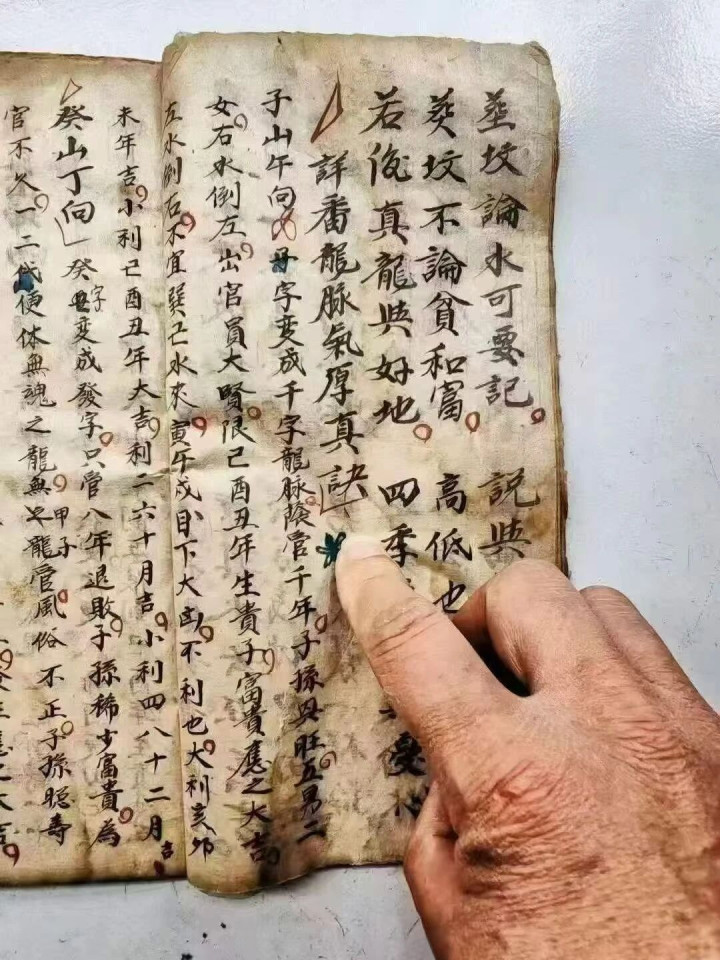 坟論水可要記 説與
葬坟不論貧和富 高低也
若後真龍與好地 四季 憂心
詳番龍脉氣厚真訣
子山午向 字变成千字龍脉蔭管千年子孫興旺五男二
女右水倒左出官員大賢限己酉丑年生貴子富貴應之大吉
左水倒右不宜巽己水來寅午戌目下大凶不利也大利亥卯
未年吉小利己酉丑年大吉利二六十月吉小利四八十二月吉
癸山丁向 癸字变成發字只管八年退敗子孫稀少富貴為
官不久一二代便体無魂之龍無之龍管風俗不正子孫聪寿
甲子